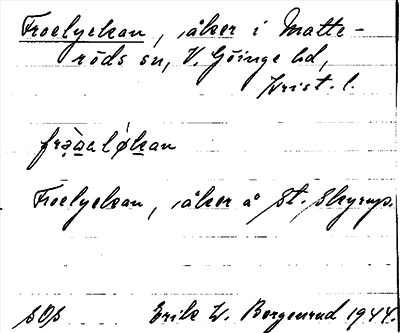 Froelyckan, åker i Matte-
röds sn, V. Göinge hd,
Krist. l.
Froelyckan, åker å St. Skyrup.
Erik W. Borgenrud 1944.